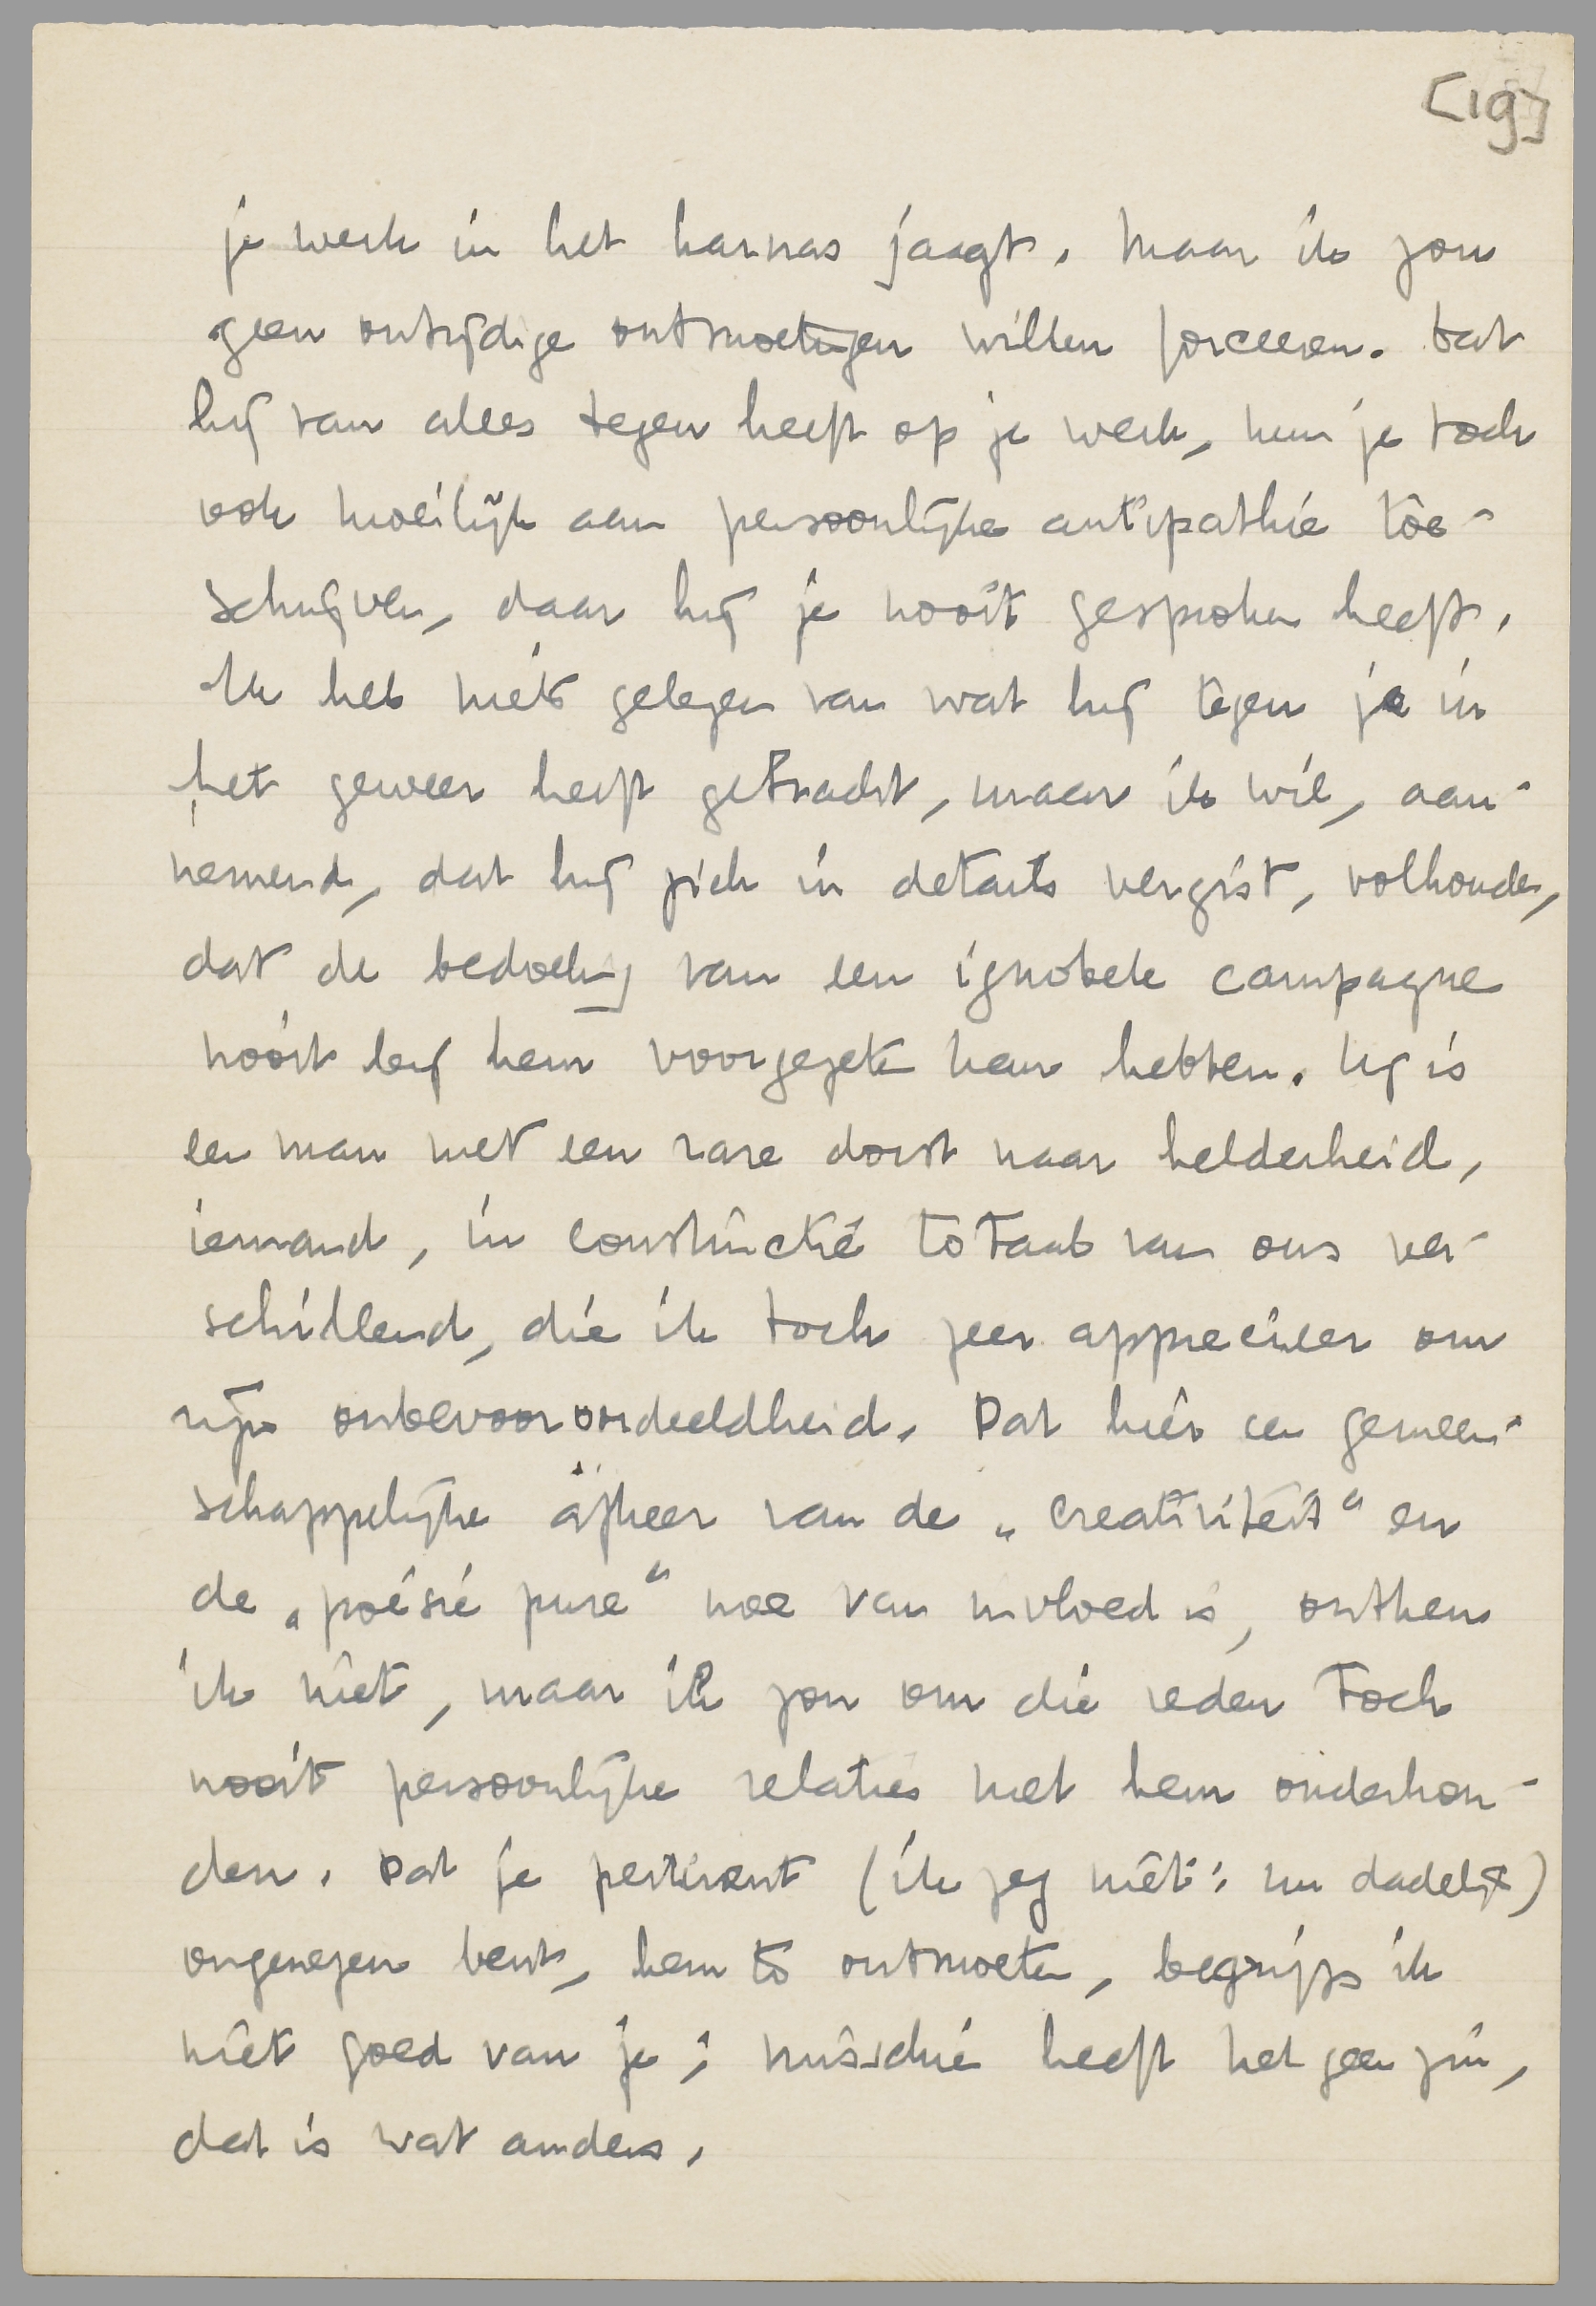 [19]
je werk in het harnas jaagt. Maar ik zou
geen ontijdige ontmoetingen willen forceeren. Dat
hij van alles tegen heeft op je werk, kun je toch
ook moeilijk aan persoonlijke antipathie toe-
schrijven, daar hij je nooit gesproken heeft.
Ik heb niets gelezen van wat hij tegen je in
het geweer heeft gebracht, maar ik wil, aan-
nemend, dat hij zich in details vergist, volhouden,
dat de bedoeling van een ignobele campagne
nooit bij hem voorgezeten kan hebben. Hij is
een man met een rare dorst naar helderheid,
iemand, in constructie totaal van ons ver-
schillend, die ik toch zeer apprecieer om
zijn onbevooroordeeldheid. Dat hier een gemeen-
schappelijke afkeer van de „creativiteit" en
de „poésie pure" mee van invloed is, ontken
ik niet, maar ik zou om die reden toch
nooit persoonlijke relaties met hem onderhou-
den. Dat je pertinent (ik zeg niet: nu dadelijk)
ongenegen bent, hem te ontmoeten, begrijp ik
niet goed van je; misschien heeft het geen zin,
dat is wat anders.